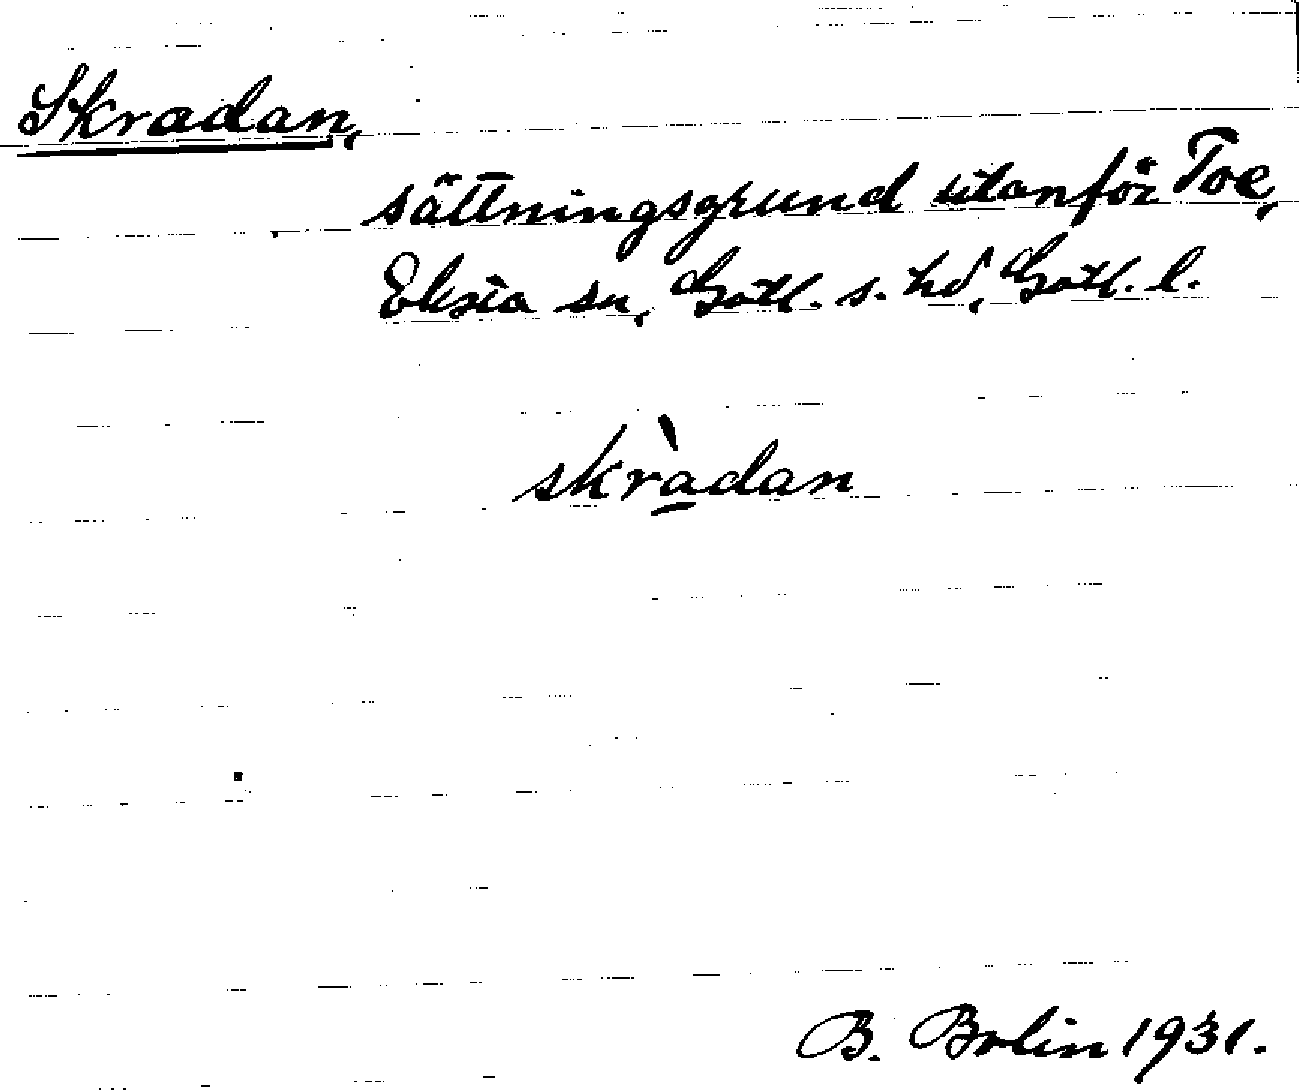 Skradan,
sättningsgrund utanför Toe,
Eksta sn, Gotl. s. hd, Gotl. l.
skr̀a̱dan
B. Bolin 1931.